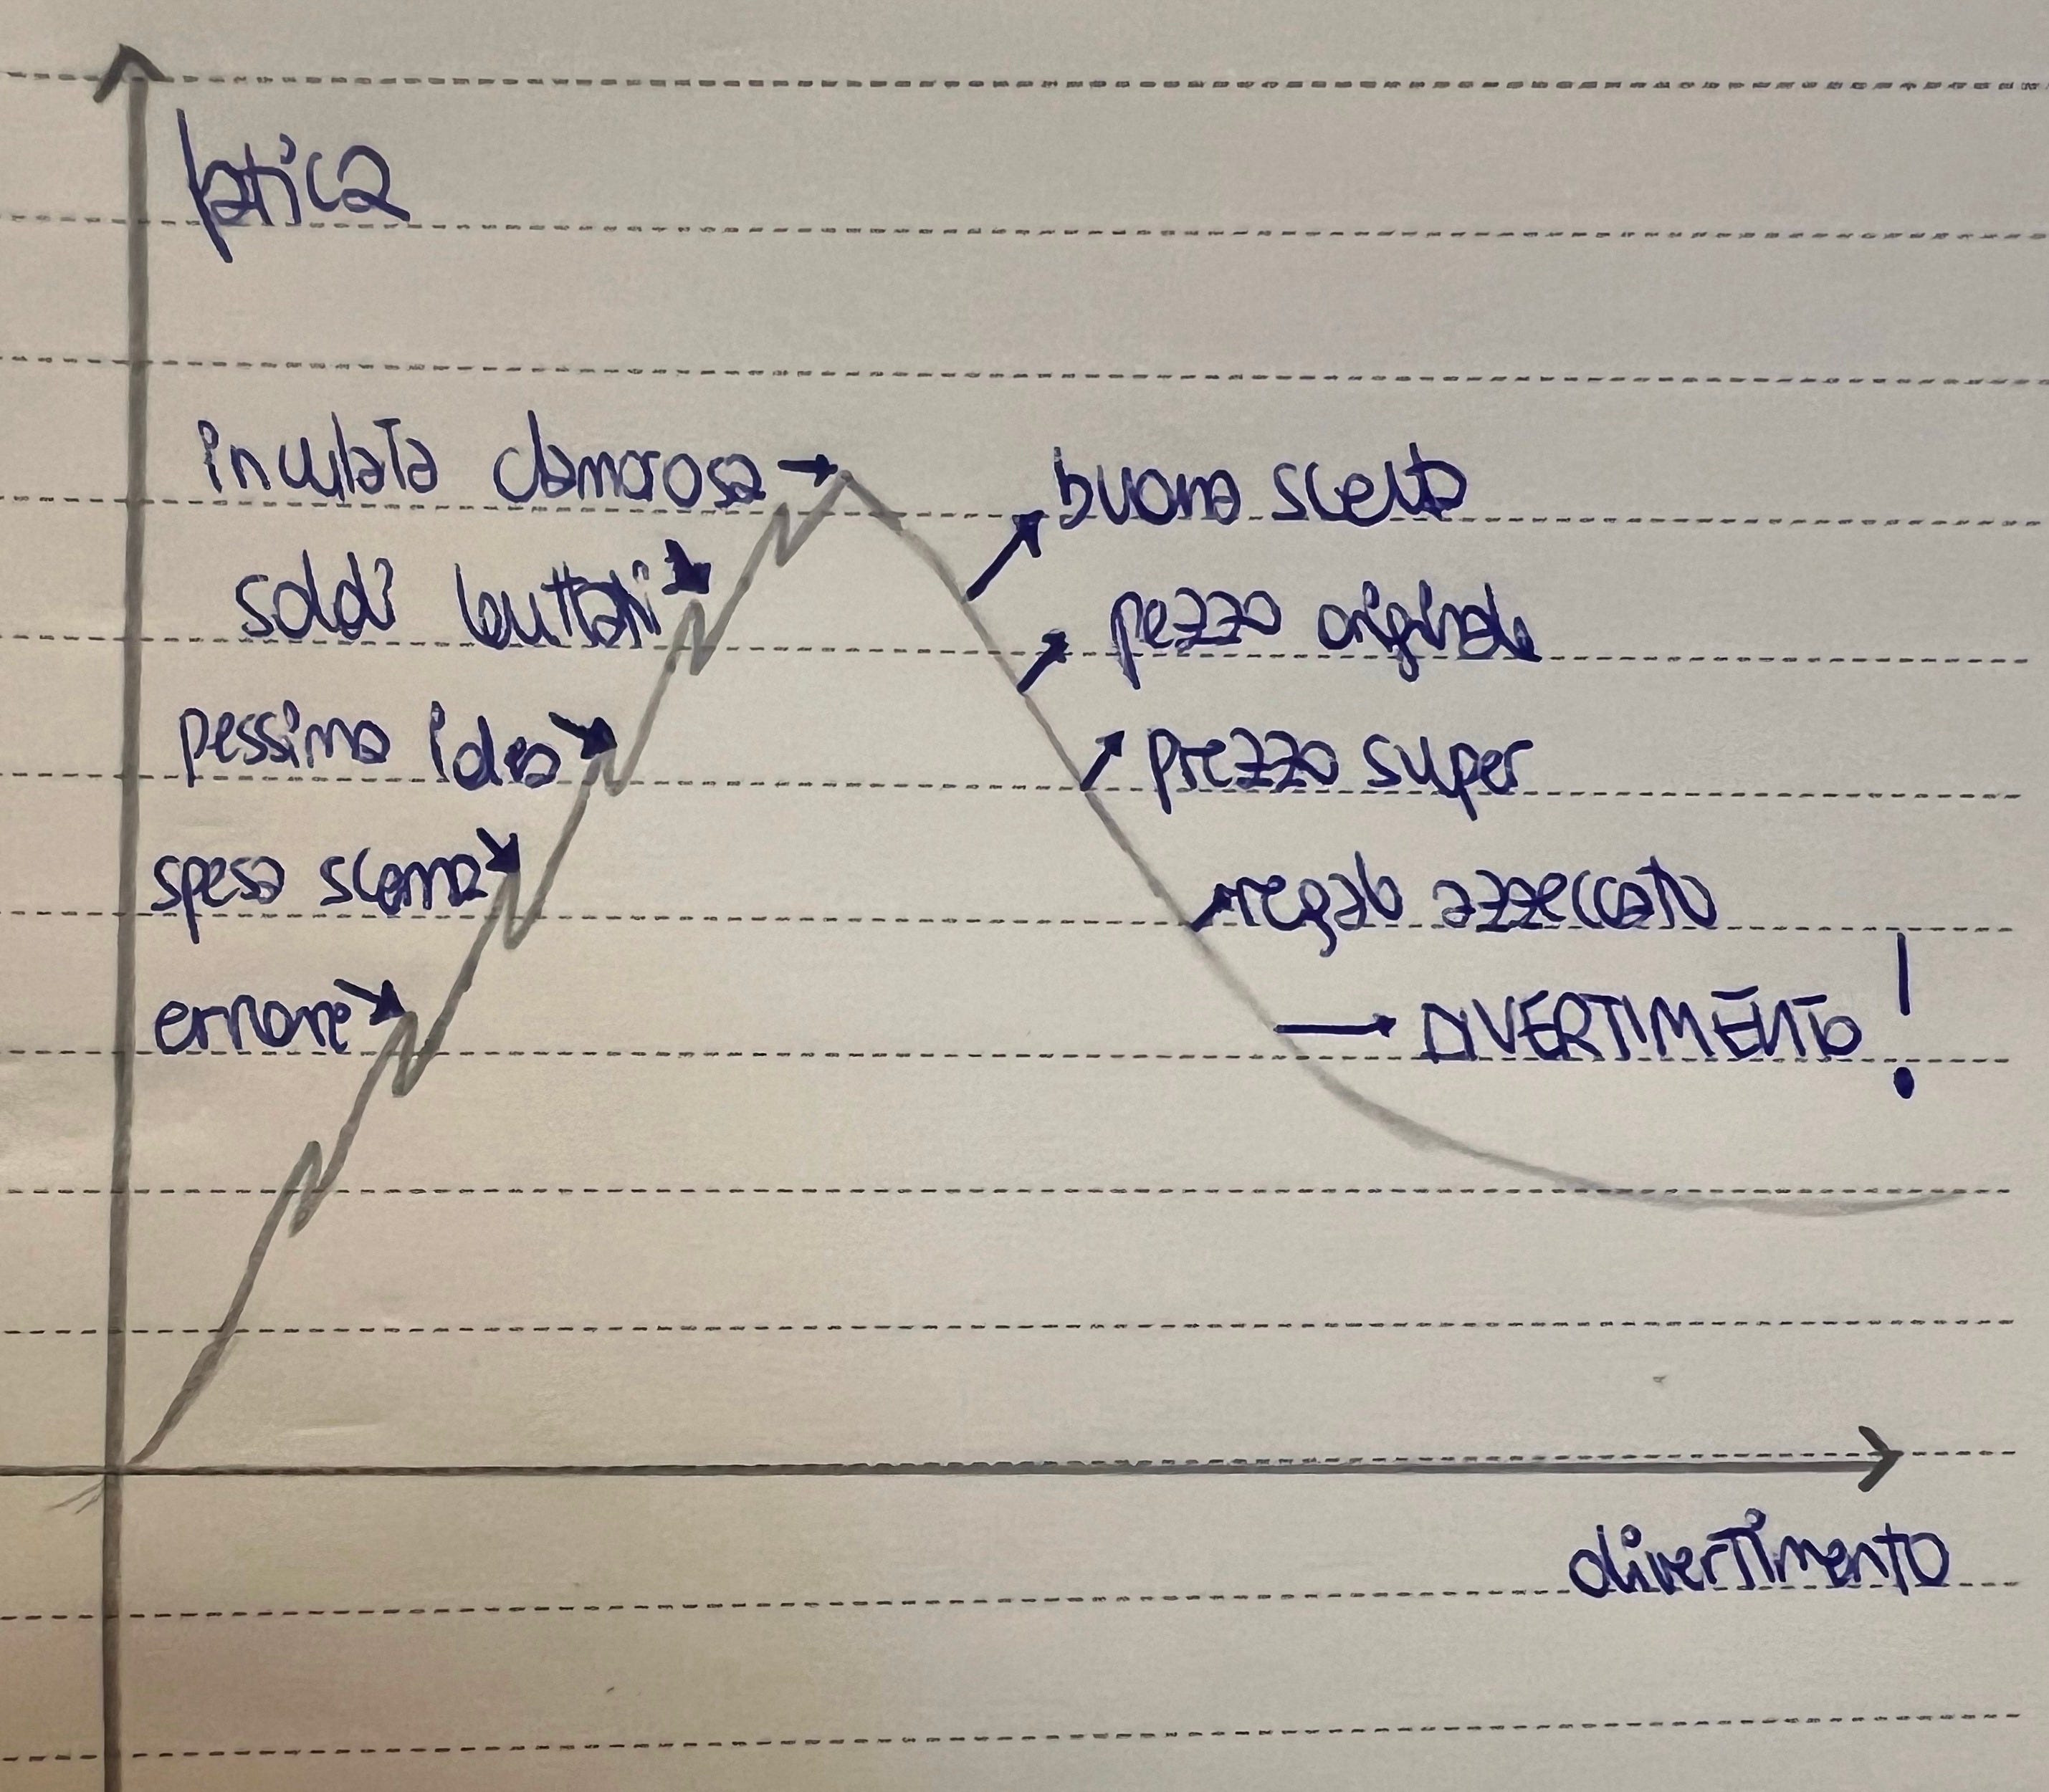 fatica
inculata clamorosa
buona scelta
soldi buttati
pezzo originale
pessima idea
prezzo super
spesa scema
regalo azzeccato
errore
DIVERTIMENTO!
divertimento